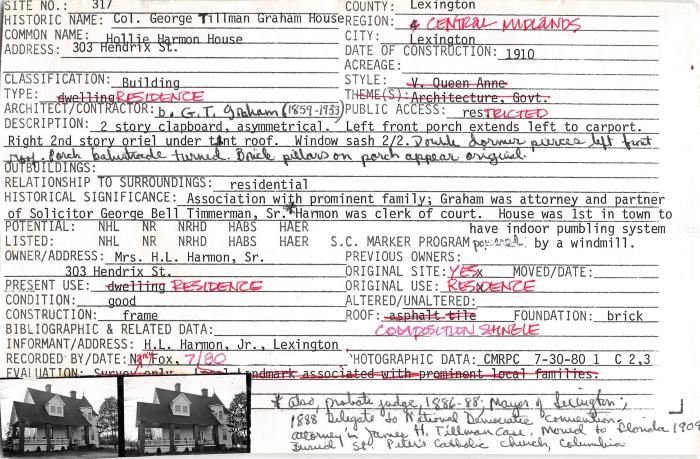 SITE NO.: 317 COUNTY: Lexington
HISTORIC NAME: Col. George Tillman Graham House REGION: CENTRAL MIDLANDS
COMMON NAME: Hollie Harmon House CITY: Lexington
ADDRESS: 303 Hendrix St. DATE OF CONSTRUCTION: 1910
ACREAGE:
CLASSIFICATION: Building STYLE: V. Queen Anne
TYPE: dwelling RESIDENCE THEME(S): Architecture, Govt.
ARCHITECT/CONTRACTOR: b. G.T. Graham (1859-1933) PUBLIC ACCESS: resTRICTED
DESCRIPTION: 2 story clapboard, asymmetrical. Left front porch extends left to carport.
Right 2nd story oriel under tnt roof. Window sash 2/2. Double dormer pierces left front
roof. Porch balustrade turned. Brick pillars on porch appear original.
OUTBUILDINGS:
RELATIONSHIP TO SURROUNDINGS: residential
HISTORICAL SIGNIFICANCE: Association with prominent family; Graham was attorney and partner
of Solicitor George Bell Timmerman, Sr.* Harmon was clerk of court. House was 1st in town to
POTENTIAL: NHL NR NRHD HABS HAER have indoor pumbling system
LISTED: NHL NR NRHD HABS HAER S.C. MARKER PROGRAM powered by a windmill.
OWNER/ADDRESS: Mrs. H.L. Harmon, Sr. PREVIOUS OWNERS:
303 Hendrix St. ORIGINAL SITE: YES x MOVED/DATE:
PRESENT USE: dwelling RESIDENCE ORIGINAL USE: RESIDENCE
CONDITION: good ALTERED/UNALTERED:
CONSTRUCTION: frame ROOF: asphalt tile FOUNDATION: brick
BIBLIOGRAPHIC & RELATED DATA: COMPOSITION SHINGLE
INFORMANT/ADDRESS: H.L. Harmon, Jr., Lexington
RECORDED BY/DATE: Fox, 7/80 PHOTOGRAPHIC DATA: CMRPC 7-30-80 1 C 2,3
EVALUATION: Survey only. Local landmark associated with prominent local families.
* Also, probate judge, 1886-88; Mayor of Lexington;
1888 Delegate to National Democratic Convention,
attorney in James H. Tillman Case, Moved to Florida 1909
Buried St. Peter's Catholic Church, Columbia